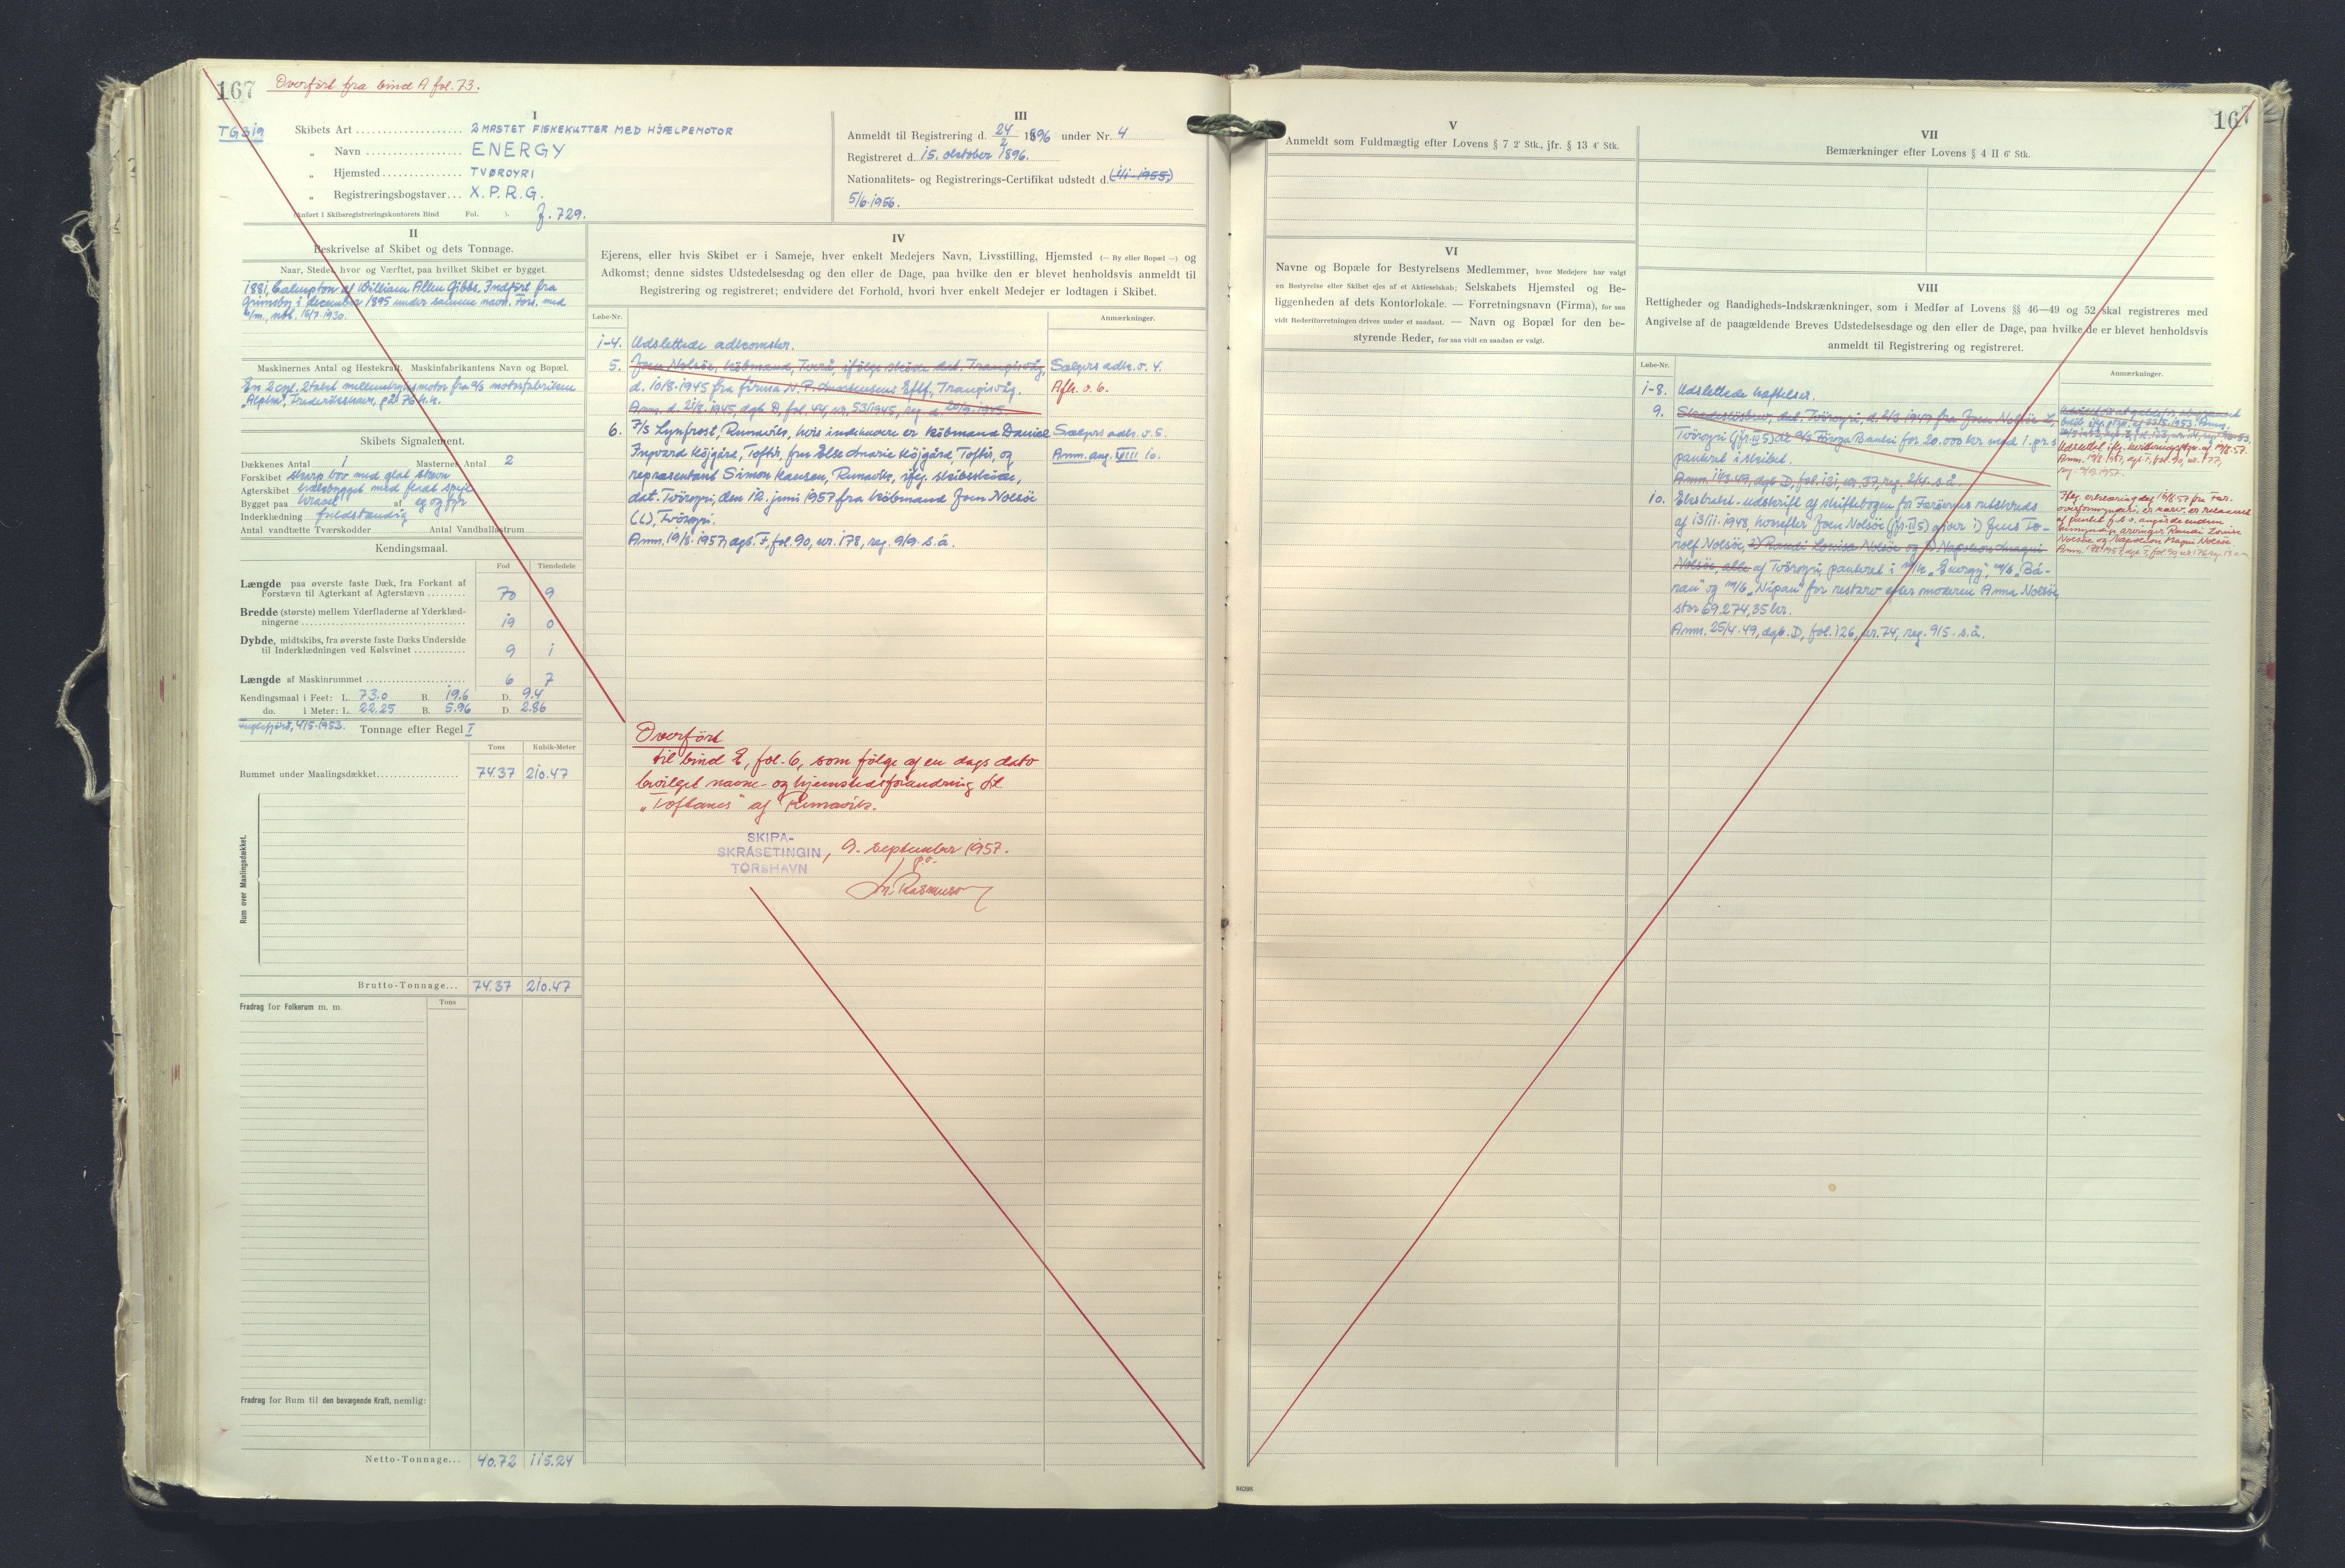 167
Overført fra bind A fol. 73.
TG 319
I
Skibets Art 2 MASTET FISKEKUTTER MED HJÆLPEMOTOR
„ Navn ENERGY
„ Hjemsted TVØROYRI
„ Registreringsbogstaver X.P.R.G.
(Anført i Skibsregistreringskontorets Bind Fol. ). J. 729.
III
Anmeldt til Registrering d. 24/2 1896 under Nr. 4
Registreret d. 15. oktober 1896.
Nationalitets- og Registrerings-Certifikat udstedt d.
5/6.1956.
II
Beskrivelse af Skibet og dets Tonnage.
Naar, Stedet, hvor og Værftet, paa hvilket Skibet er bygget.
1881, Galmpton af William Allen Gibbs. Indført fra
Grimsby i december 1895 under samme navn. Fors. med
h/m., 16/7.1930.
Maskinernes Antal og Hestekraft. Maskinfabrikantens Navn og Bopæl.
En 2 cyl. 2 takt mellemtryksmotor fra A/S motorfabriken
„Alpha“, Frederikshavn, på 76 h.k.
Skibets Signalement.
Dækkenes Antal 1 Masternes Antal 2
Forskibet skarp bov med glat stævn
Agterskibet hækbygget med fladt spejl
Bygget paa kravel af eg og fyr
Inderklædning fuldstændig
Antal vandtætte Tværskodder Antal Vandballastrum
Kendingsmaal.
Fod Tiendedele
Længde paa øverste faste Dæk, fra Forkant af
Forstævn til Agterkant af Agterstævn 70 9
Bredde (største) mellem Yderfladerne af Yderklæd-
ningerne 19 0
Dybde, midtskibs, fra øverste faste Dæks Underside
til Inderklædningen ved Kølsvinet 9 1
Længde af Maskinrummet 6 7
Kendingsmaal i Feet: L. 73.0 B. 19.6 D. 9.4
do. i Meter: L. 22.25 B. 5.96 D. 2.86
Fuglefjörð, 4/5.1953. Tonnage efter Regel I
Tons Kubik-Meter
Rummet under Maalingsdækket 74.37 210.47
Rum over Maalingsdækket.
Brutto-Tonnage... 74.37 210.47
Fradrag for Folkerum m. m. Tons
Fradrag for Rum til den bevægende Kraft, nemlig:
Netto-Tonnage... 40.72 115.24
IV
Ejerens, eller hvis Skibet er i Sameje, hver enkelt Medejers Navn, Livsstilling, Hjemsted (— By eller Bopæl —) og
Adkomst; denne sidstes Udstedelsesdag og den eller de Dage, paa hvilke den er blevet henholdsvis anmeldt til
Registrering og registreret; endvidere det Forhold, hvori hver enkelt Medejer er lodtagen i Skibet.
Løbe-Nr. Anmærkninger.
1-4. Udslettede adkomster.
5. Joen Nolsöe, købmand, Tverå, ifølge skøde dat. Trangisvåg, Sælgers adk. v. 4.
d. 10/8.1945 fra firma N.P. Mortensens Eftf., Trangisvåg. Afh. v. 6.
Anm. d. 21/8.1945, dgb. D, fol. 44, nr. 53/1945, reg. d.
6. F/S Lynfrost, Runavík, hvis indehavere er købmand Daniel Sælgers adk. v. 5.
Ingvard Höjgård, Toftir, fru Else Marie Höjgård Toftir, og Anm. ang. VIII 10.
repræsentant Simon Hansen, Runavík, iføg. skibsskøde,
dat. Tvöroyri, den 12. juni 1957 fra købmand Joen Nolsöe
(L), Tvöroyri.
Anm. 19/8.1957, dgb. F, fol. 90, nr. 178, reg. 9/9. s.å.
Overført
til bind E, fol. 6, som følge af en dags dato
bevilget navne- og hjemstedsforandring til
„Toftanes“ af Runavík.
SKIPA-
SKRÁSETINGIN
TÓRSHAVN
, 9. september 1957.
p.v.
V
Anmeldt som Fuldmægtig efter Lovens § 7 2' Stk., jfr. § 13 4' Stk.
VI
Navne og Bopæle for Bestyrelsens Medlemmer, hvor Medejere har valgt
en Bestyrelse eller Skibet ejes af et Aktieselskab; Selskabets Hjemsted og Be-
liggenheden af dets Kontorlokale. — Forretningsnavn (Firma), for saa
vidt Rederiforretningen drives under et saadant. — Navn og Bopæl for den be-
styrende Reder, for saa vidt en saadan er valgt.
167
VII
Bemærkninger efter Lovens § 4 II 6' Stk.
VIII
Rettigheder og Raadigheds-Indskrænkninger, som i Medfør af Lovens §§ 46—49 og 52 skal registreres med
Angivelse af de paagældende Breves Udstedelsesdage og den eller de Dage, paa hvilke de er blevet henholdsvis
anmeldt til Registrering og registreret.
Løbe-Nr. Anmærkninger.
1-8. Udslettede hæftelser.
9. Skadesløsbrev, dat. Tvöroyri, d. 2/3 1949 fra Joen Nolsöe L,
Tvöroyri (jfr. IV 5) til A/S Føroya Banki for 20.000 kr med 1. pr. s
panteret i skibet.
Anm. 11/3.49, dgb. D, fol. 121, nr. 37, reg. 2/4. s.å.
10. Ekstrakt-udskrift af skiftebogen for Færøernes retskreds
af 13/11.1948, hvorefter Joen Nolsöe (jfr. IV 5) giver 1) Jens To-
rolf Nolsöe, 2) Randi Louisa Nolsöe og 3) Napoleon Magni
Nolsöe, alle af Tvöroyri, panteret i m/k „Energy“, m/b „Bá-
ran“ og m/b „Nípan“ for restarv efter moderen Anna Nolsöe,
stor 69.274,35 kr.
Anm. 25/4.49, dgb. D, fol. 126, nr. 74, reg. 9/5. s.å.